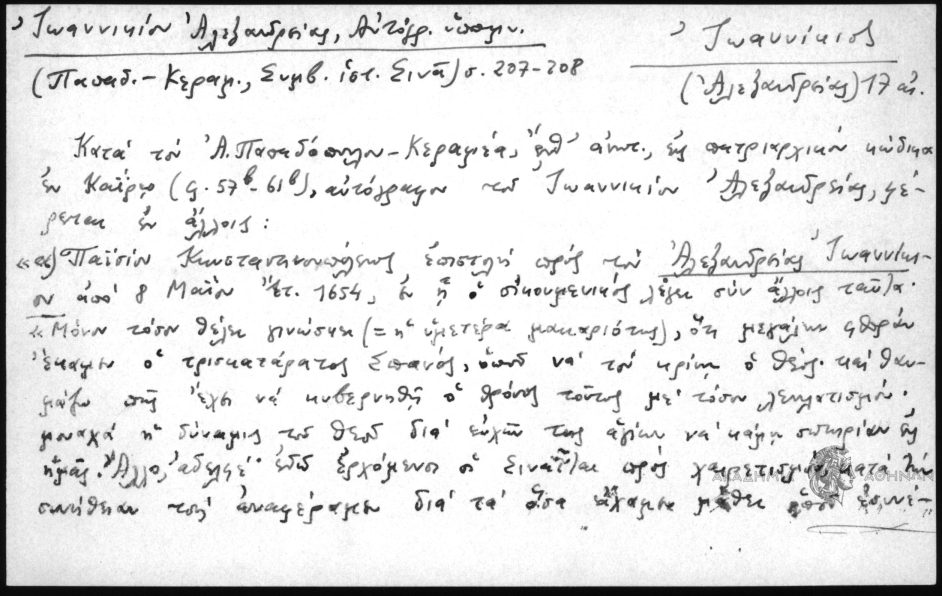 Ἰωαννικίου Ἀλεξανδρείας, Αὐτόγρ. ὑπομν.
Ἰωαννίκιος
(Παπαδ.-Κεραμ., Συμβ. ἱστ. Σινᾶ) σ. 207-208
(Ἀλεξανδρείας) 17 αἰ.
Κατὰ τὸν Ἀ. Παπαδόπουλον-Κεραμέα, ἔνθ' ἀνωτ., εἰς πατριαρχικὸν κώδικα
ἐν Καΐρῳ (φ. 57β-61β), αὐτόγραφον τοῦ Ἰωαννικίου Ἀλεξανδρείας, φέ-
ρεται ἐν ἄλλοις:
««α) Παϊσίου Κωνσταντινουπόλεως ἐπιστολὴ πρὸς τὸν Ἀλεξανδρείας Ἰωαννίκι-
ον ἀπὸ 8 Μαΐου ἔτ. 1654, ἐν ᾗ ὁ οἰκουμενικὸς λέγει σὺν ἄλλοις ταῦτα·
«Μόνον τόσον θέλει γινώσκει (= ἡ ὑμετέρα μακαριότης), ὅτι μεγάλην φθορὰν
ἔκαμεν ὁ τρισκατάρατος Σπανός, ὁποῦ νὰ τὸν κρίνῃ ὁ θεός· καὶ θαυ-
μάζω πῶς ἔχει νὰ κυβερνηθῇ ὁ θρόνος τοῦτος μὲ τόσον λεηλατισμόν·
μοναχὰ ἡ δύναμις τοῦ θεοῦ διὰ εὐχῶν της ἁγίων νὰ κάμῃ σωτηρίαν εἰς
ἡμᾶς. Ἄλλο, ἀδελφέ· ἐδῶ ἐρχόμενοι οἱ Σιναῗται πρὸς χαιρετισμὸν κατὰ τὴν
συνήθειαν τοὺς ἀναφέραμεν διὰ τὰ ὅσα εἴχαμεν μάθει ὁποῦ ἐσυνε-
ΑΚΑΔΗΜΙΑ ΑΘΗΝΩΝ